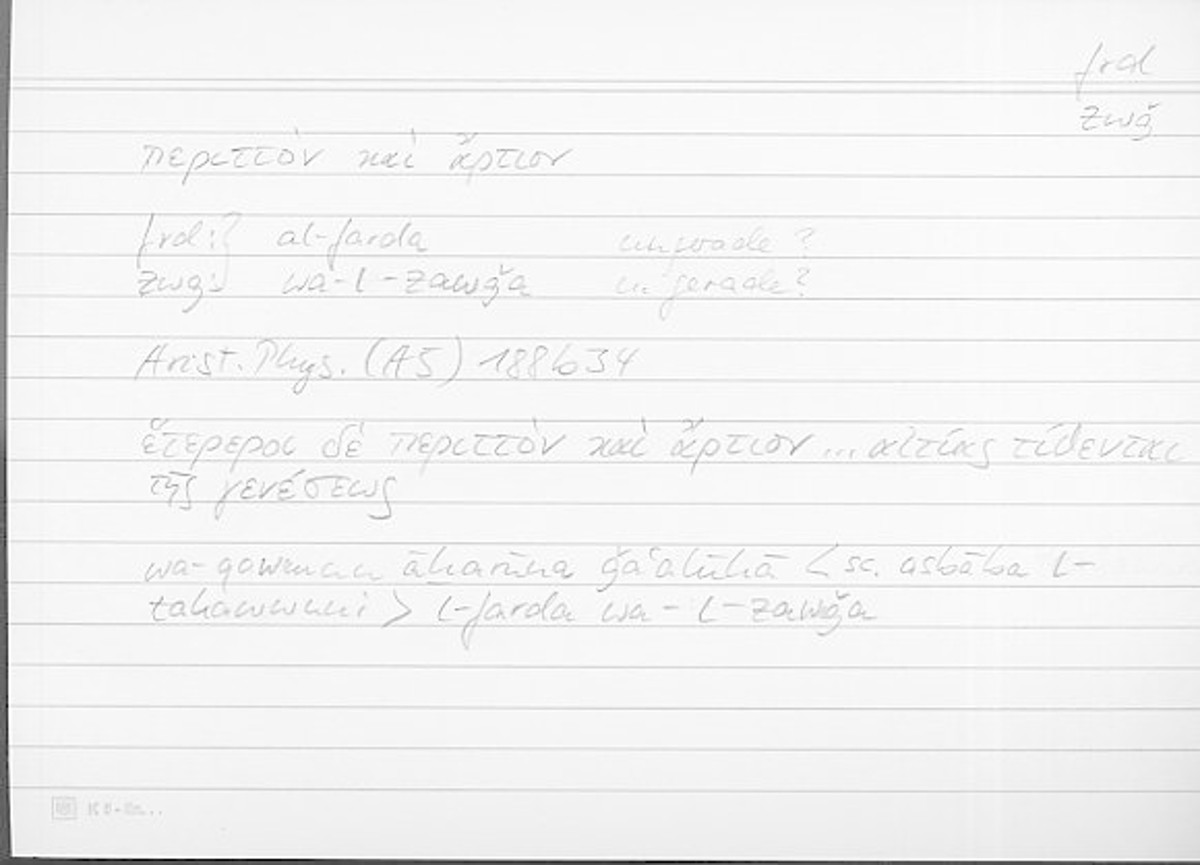 frd
zwǧ
περιττὸν καὶ ἄρτιον
frd: al-farda ungerade?
zwǧ: wa-l-zawǧa u. gerade?
Arist. Phys. (A5) 188b34
ἕτεροι δὲ περιττὸν καὶ ἄρτιον ... αἰτίας τίθενται
τῆς γενέσεως
wa-qawmun āḫarūna ǧaʿalūhā < sc. asbāba l-
takawwuni > l-farda wa-l-zawǧa